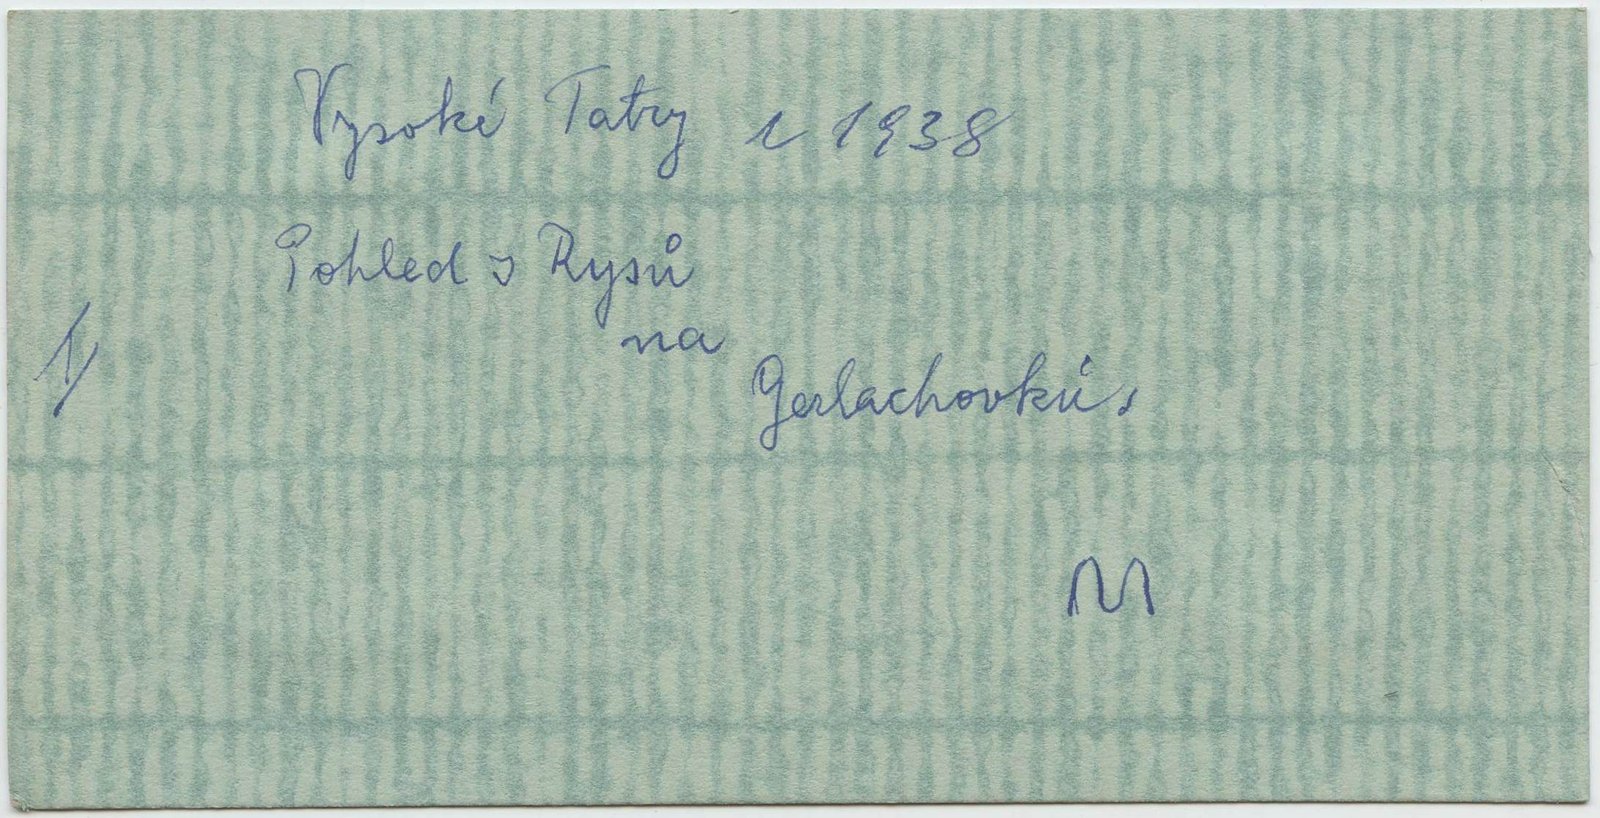 Vysoké Tatry r 1938
Pohled s Rysů
na
1/
Gerlachovků.
M